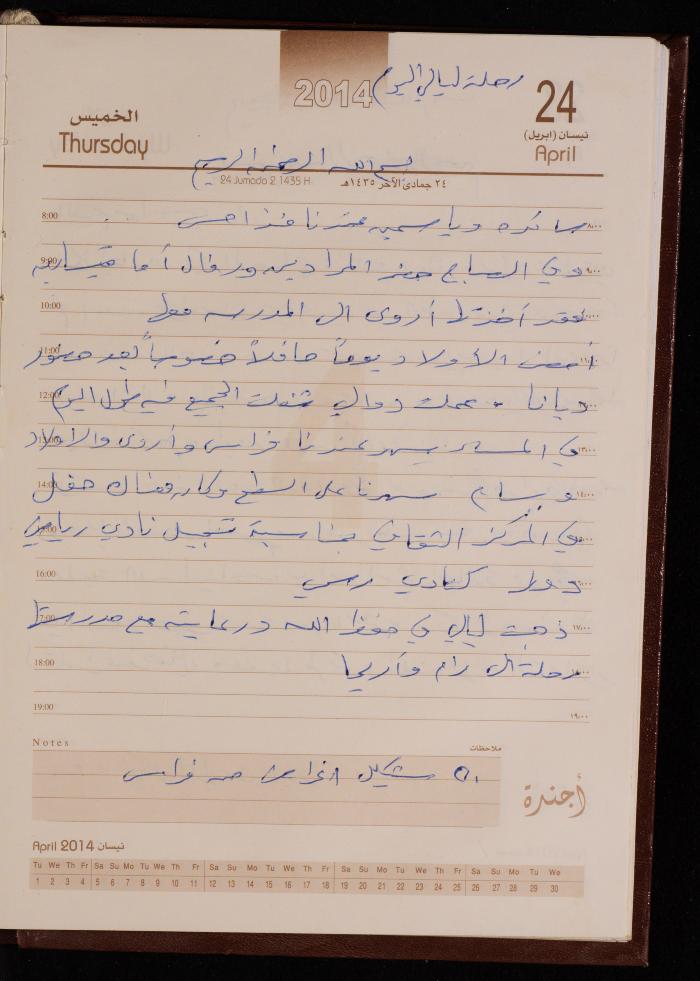 رحلة ليالي اليوم
2014
24
الخميس
Thursday
نيسان (ابريل)
April
بسم الله الرحمن الرحيم
24 Jumada 2. 1435 H
٢٤ جمادى الآخر ١٤٣٥هـ
8:00 سائده وياسمين عندنا منذ امس ٨:٠٠
9:00 وفي الصباح حضر المراديس ورفال أما ٩:٠٠
10:00 فقد أخذتها أروى الى المدرسه معها ١٠:٠٠
11:00 أمضى الأولاد يوماً حافلاً خصوصاً بعد حضور ١١:٠٠
12:00 ديانا . عمك دوالي شغلت الجميع فيه طول اليوم
13:00 في المساء سهر عندنا فراس وأروى والاولاد ١٣:٠٠
14:00 وبسام سهرنا على السطح وكان هناك حفل ١٤:٠٠
في المركز الثقافي بمناسبة تسجيل نادي رياضي
16:00 كنادي رسمي
17:00 ذهبت ليالي في حفظ الله ورعايته مع مدرستها ١٧:٠٠
18:00 رحلة الى رام وأريحا
19:00 ١٩:٠٠
Notes
ملاحظات
٥٠ شيكل من فراس
أجندة
April 2014 نيسان
Tu We Th Fr Sa Su Mo Tu We Th Fr Sa Su Mo Tu We Th Fr Sa Su Mo Tu We Th Fr Sa Su Mo Tu We
1 2 3 4 5 6 7 8 9 10 11 12 13 14 15 16 17 18 19 20 21 22 23 24 25 26 27 28 29 30